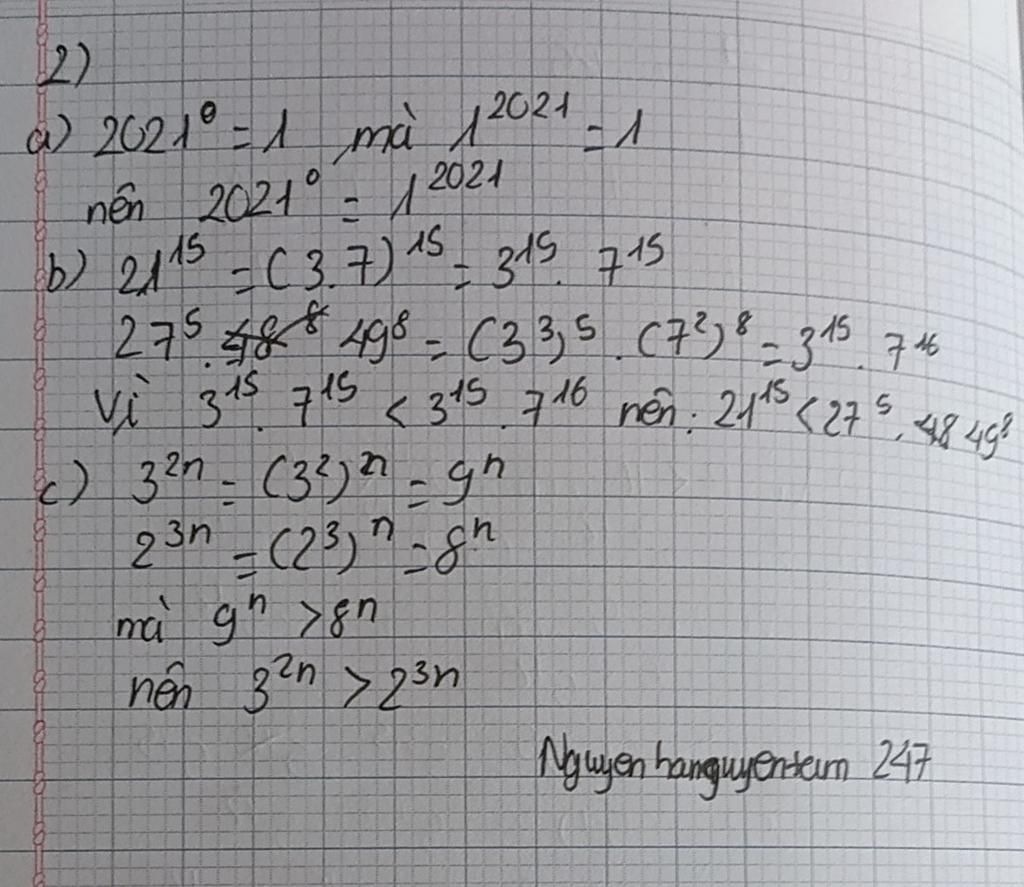 2)
a) 2021⁰ = 1 mà 1²⁰²¹ = 1
nên 2021⁰ = 1²⁰²¹
b) 21¹⁵ = (3.7)¹⁵ = 3¹⁵. 7¹⁵
27⁵. 48⁸ 49⁸ = (3³)⁵. (7²)⁸ = 3¹⁵. 7¹⁶
Vì 3¹⁵. 7¹⁵ < 3¹⁵. 7¹⁶ nên: 21¹⁵ < 27⁵. 48 49⁸
c) 3²ⁿ = (3²)ⁿ = 9ⁿ
2³ⁿ = (2³)ⁿ = 8ⁿ
mà 9ⁿ > 8ⁿ
nên 3²ⁿ > 2³ⁿ
247